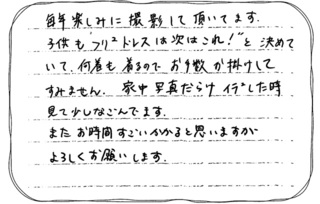 毎年楽しみに撮影して頂いてます。
子供も"フリフリドレスは次はこれ!"と決めて
いて、何着も着るので お手数が掛けして
すみません。家中写真だらけ イデした時
見て少しなごんでます。
またお時間すごいかかると思いますが
よろしくお願いします。